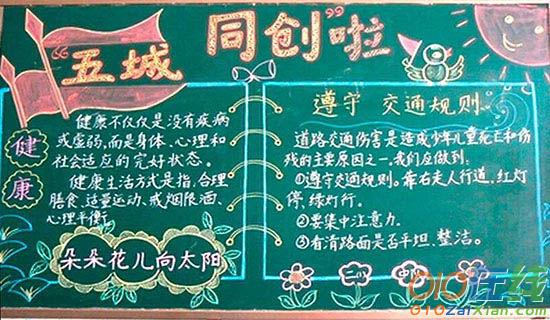 “五城 同创”啦
健康
健康不仅仅是没有疾病
或虚弱,而是身体、心理和
社会适应的完好状态。
健康生活方式是指,合理
膳食、适量运动、戒烟限酒、
心理平衡。
朵朵花儿向太阳
遵守 交通规则。
道路交通伤害是造成少年儿童死亡和伤
残的主要原因之一,我们应做到:
①遵守交通规则。靠右走人行道,红灯
停,绿灯行。
②要集中注意力。
③看清路面是否平坦、整洁。
010在线
010zaixian.com